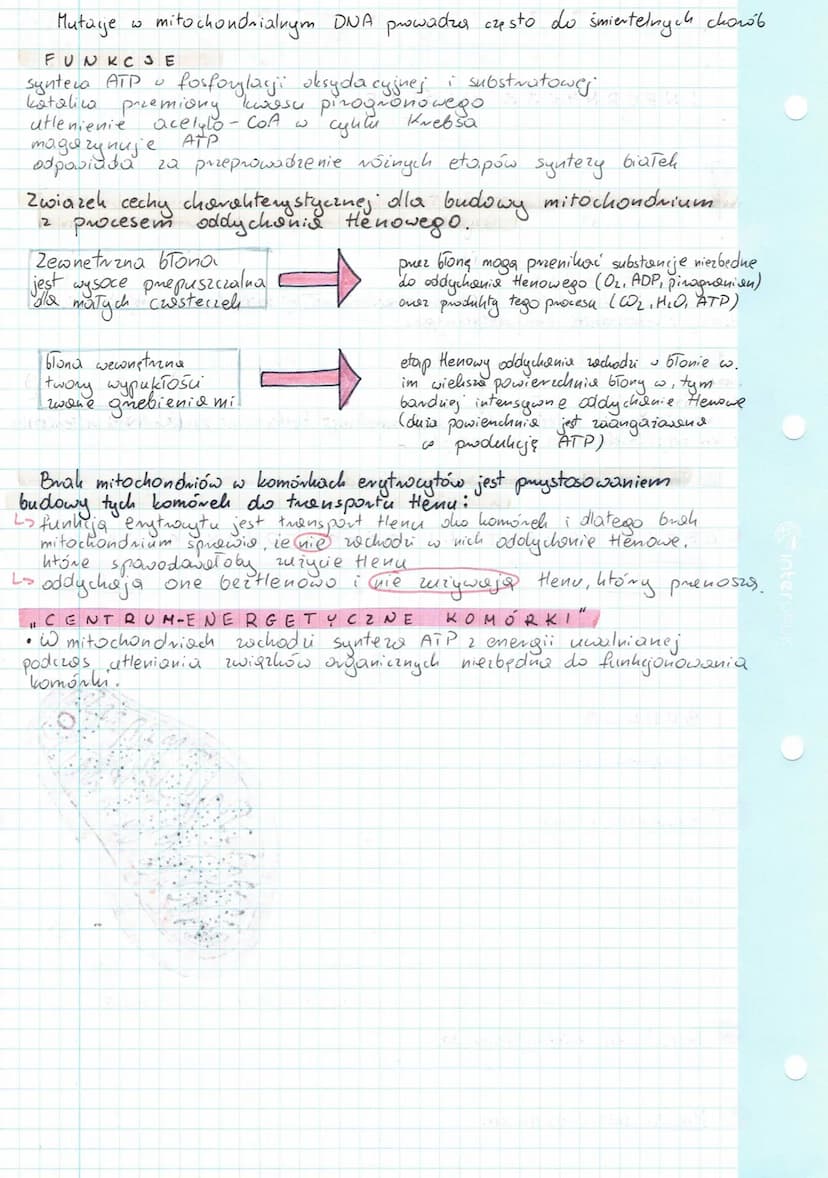 Mutacje w mitochondrialnym DNA prowadzą często do śmiertelnych chorób
FUNKCJE
synteza ATP w fosforylacji oksydacyjnej i substratowej
kataliza przemiany kwasu pirogronowego
utlenienie acetylo-CoA w cyklu Krebsa
magazynuje ATP
odpowiada za przeprowadzenie różnych etapów syntezy białek
Związek cechy charakterystycznej dla budowy mitochondrium
z procesem oddychania tlenowego.
Zewnętrzna błona
jest wysoce przepuszczalna
dla małych cząsteczek
przez błonę mogą przenikać substancje niezbędne
do oddychania tlenowego (O₂, ADP, pirogronian)
oraz produkty tego procesu (CO₂, H₂O, ATP)
błona wewnętrzna
tworzy wypukłości
zwane grzebieniami
etap tlenowy oddychania zachodzi w błonie w.
im większa powierzchnia błony w, tym
bardziej intensywne oddychanie tlenowe
(duża powierzchnia jest zaangażowana
w produkcję ATP)
Brak mitochondriów w komórkach erytrocytów jest przystosowaniem
budowy tych komórek do transportu tlenu:
↳ funkcją erytrocytu jest transport tlenu do komórek i dlatego brak
mitochondrium sprawia, że nie zachodzi w nich oddychanie tlenowe,
które spowodowałoby zużycie tlenu
↳ oddychają one beztlenowo i nie zużywają tlenu, który przenoszą.
„CENTRUM-ENERGETYCZNE KOMÓRKI"
• W mitochondriach zachodzi synteza ATP z energii uwalnianej
podczas utleniania związków organicznych niezbędna do funkcjonowania
komórki.